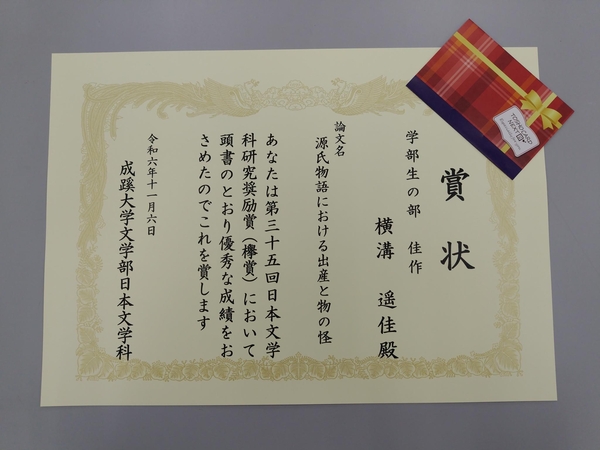 賞状
学部生の部 佳作
横溝 遥佳殿
論文名
源氏物語における出産と物の怪
あなたは第三十五回日本文学
科研究奨励賞（欅賞）において
頭書のとおり優秀な成績をお
さめたのでこれを賞します
令和六年十一月六日
成蹊大学文学部日本文学科
TOSHOCARD
NEXT